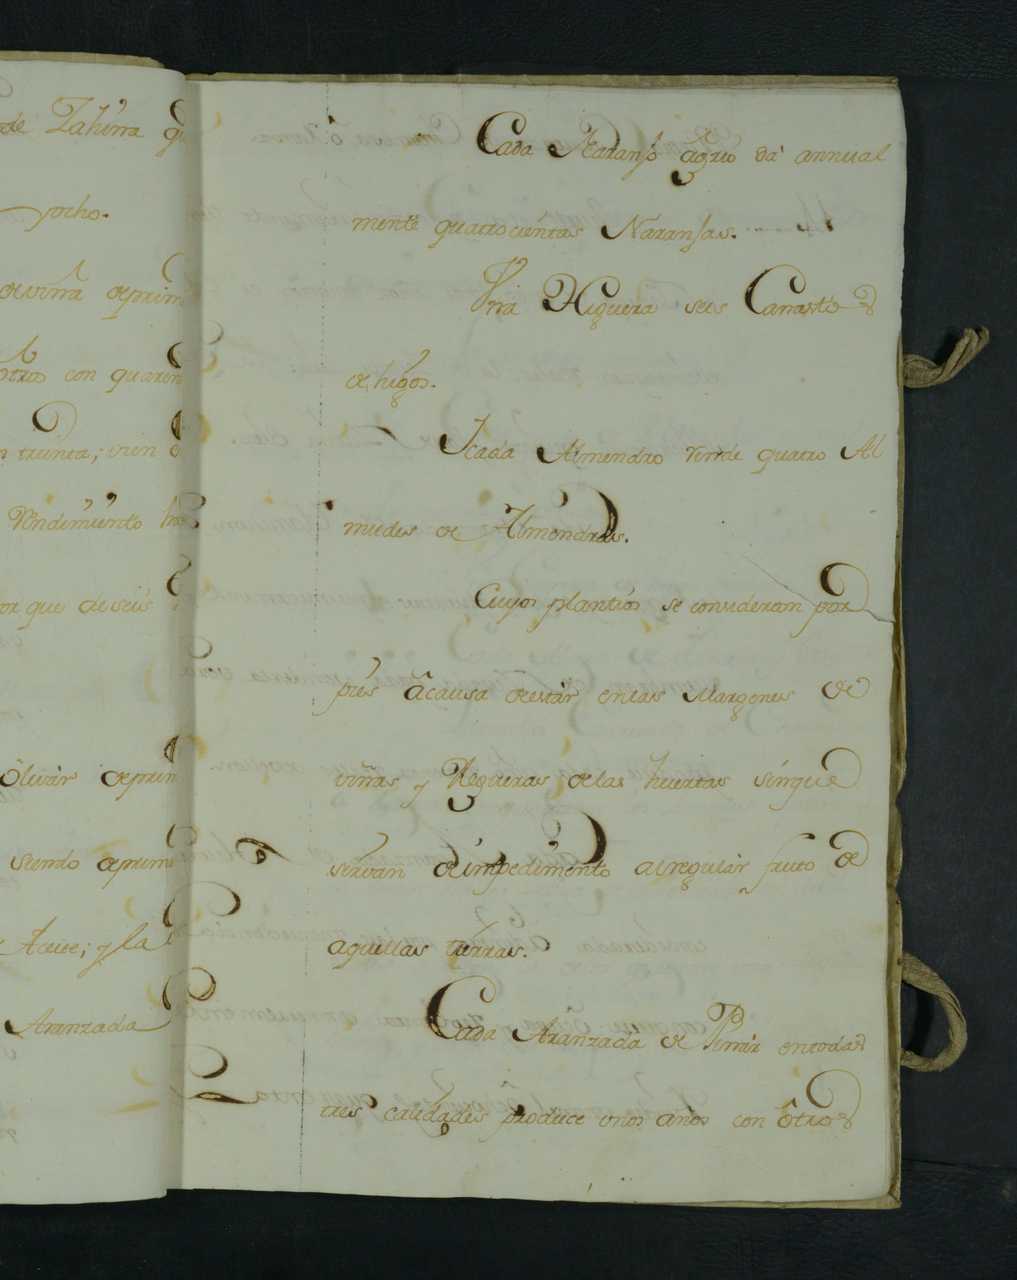 de Zahirra
ocho.
de viña de prim
otros con quaren
n treinta; vien
Rendimiento
por que de seis
Olivar de prim
siendo de prim
Aceite; y la
Aranzada
Cada Naranjo agrio dà annual
mente quattrocientas Naranjas.
Vna Higuera seis Canastos
de higos.
Ycada Almendro rinde quatro Al
mudes de Almendras.
Cuyos plantios se consideran por
pies àcausa de estàr enlas Margenes de
viñas, y Regueras delas huertas sinque
sirvan de impedimento alregular fruto de
aquellas tierras.
Cada Aranzada de Pinar entodas
tres calidades produce vnos años con ôtros